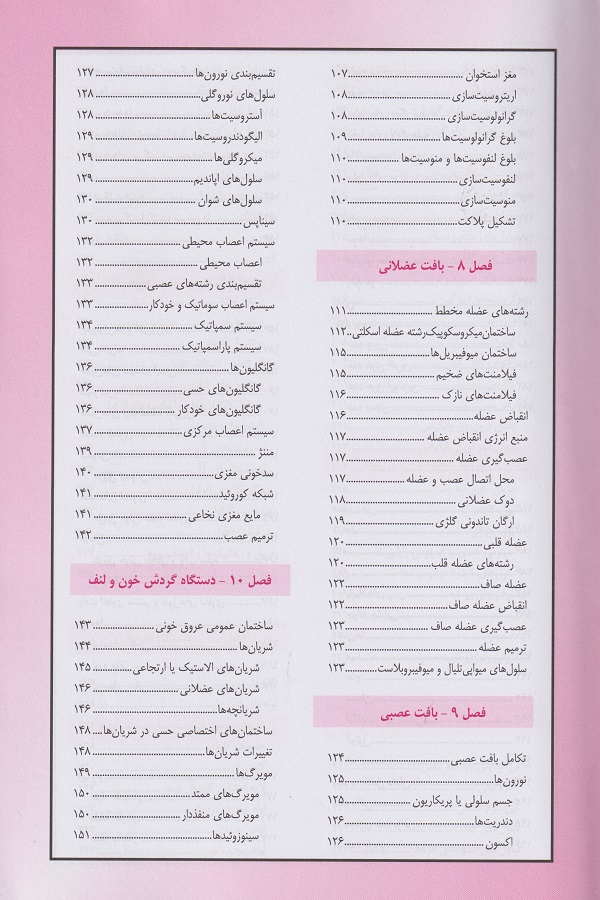 مغز استخوان ........ ۱۰۷
اریتروسیت‌سازی ........ ۱۰۸
گرانولوسیت‌سازی ........ ۱۰۸
بلوغ گرانولوسیت‌ها ........ ۱۰۹
بلوغ لنفوسیت‌ها و منوسیت‌ها ........ ۱۱۰
لنفوسیت‌سازی ........ ۱۱۰
منوسیت‌سازی ........ ۱۱۰
تشکیل پلاکت ........ ۱۱۰
فصل ۸ - بافت عضلانی
رشته‌های عضله مخطط ........ ۱۱۱
ساختمان میکروسکوپیک رشته عضله اسکلتی .. ۱۱۲
ساختمان میوفیبریل‌ها ........ ۱۱۵
فیلامنت‌های ضخیم ........ ۱۱۵
فیلامنت‌های نازک ........ ۱۱۶
انقباض عضله ........ ۱۱۶
منبع انرژی انقباض عضله ........ ۱۱۷
عصب‌گیری عضله ........ ۱۱۷
محل اتصال عصب و عضله ........ ۱۱۷
دوک عضلانی ........ ۱۱۸
ارگان تاندونی گلژی ........ ۱۱۹
عضله قلبی ........ ۱۲۰
رشته‌های عضله قلب ........ ۱۲۰
عضله صاف ........ ۱۲۲
انقباض عضله صاف ........ ۱۲۲
عصب‌گیری عضله صاف ........ ۱۲۳
ترمیم عضله ........ ۱۲۳
سلول‌های میواپی‌تلیال و میوفیبروبلاست ........ ۱۲۳
فصل ۹ - بافت عصبی
تکامل بافت عصبی ........ ۱۲۴
نورون‌ها ........ ۱۲۵
جسم سلولی یا پریکاریون ........ ۱۲۵
دندریت‌ها ........ ۱۲۶
اکسون ........ ۱۲۶
تقسیم‌بندی نورون‌ها ........ ۱۲۷
سلول‌های نوروگلی ........ ۱۲۸
آستروسیت‌ها ........ ۱۲۸
الیگودندروسیت‌ها ........ ۱۲۹
میکروگلی‌ها ........ ۱۲۹
سلول‌های اپاندیم ........ ۱۲۹
سلول‌های شوان ........ ۱۳۰
سیناپس ........ ۱۳۰
سیستم اعصاب محیطی ........ ۱۳۲
اعصاب محیطی ........ ۱۳۲
تقسیم‌بندی رشته‌های عصبی ........ ۱۳۳
سیستم اعصاب سوماتیک و خودکار ........ ۱۳۳
سیستم سمپاتیک ........ ۱۳۴
سیستم پاراسمپاتیک ........ ۱۳۴
گانگلیون‌ها ........ ۱۳۶
گانگلیون‌های حسی ........ ۱۳۶
گانگلیون‌های خودکار ........ ۱۳۶
سیستم اعصاب مرکزی ........ ۱۳۷
مننژ ........ ۱۳۹
سدخونی مغزی ........ ۱۴۰
شبکه کوروئید ........ ۱۴۱
مایع مغزی نخاعی ........ ۱۴۱
ترمیم عصب ........ ۱۴۲
فصل ۱۰ - دستگاه گردش خون و لنف
ساختمان عمومی عروق خونی ........ ۱۴۳
شریان‌ها ........ ۱۴۴
شریان‌های الاستیک یا ارتجاعی ........ ۱۴۵
شریان‌های عضلانی ........ ۱۴۶
شریانچه‌ها ........ ۱۴۶
ساختمان‌های اختصاصی حسی در شریان‌ها .... ۱۴۸
تغییرات شریان‌ها ........ ۱۴۸
مویرگ‌ها ........ ۱۴۹
مویرگ‌های ممتد ........ ۱۵۰
مویرگ‌های منفذدار ........ ۱۵۰
سینوزوئیدها ........ ۱۵۱